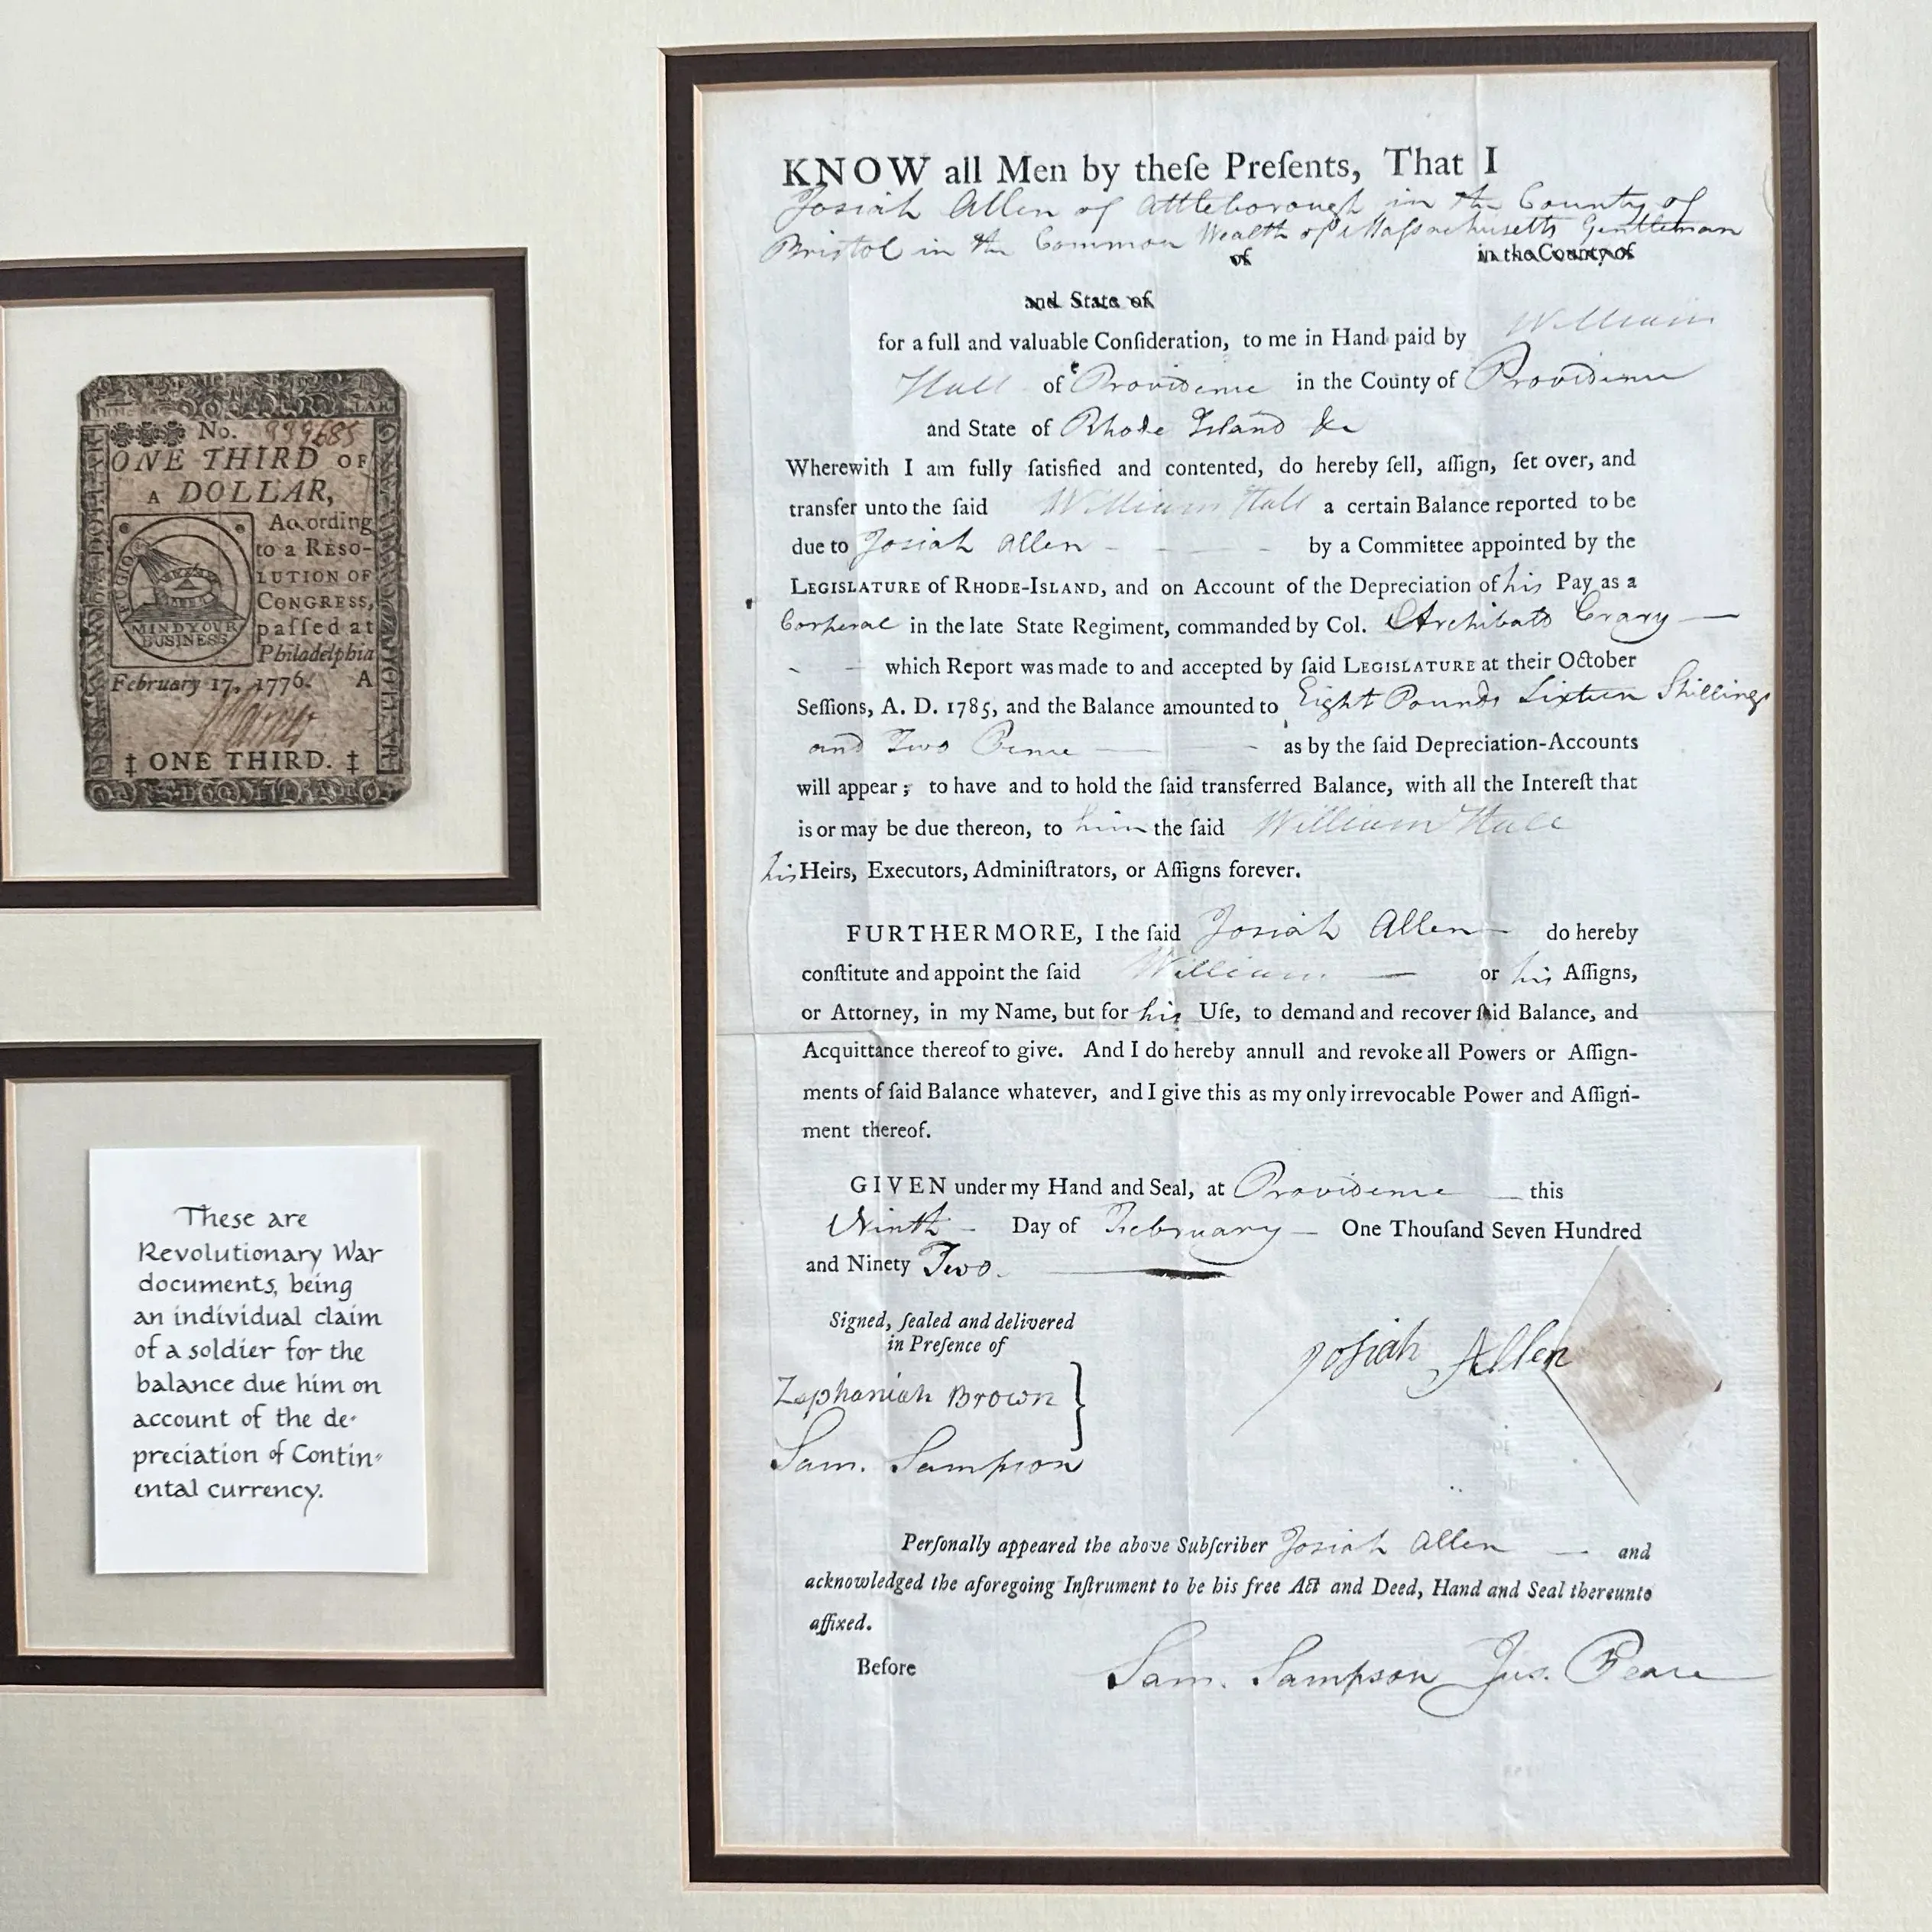 No. 939685
ONE THIRD OF
A DOLLAR,
According
to a RESO-
LUTION OF
CONGRESS,
paſſed at
Philadelphia
February 17, 1776. A
FUGIO
MIND YOUR
BUSINESS
‡ ONE THIRD. ‡
These are
Revolutionary War
documents, being
an individual claim
of a soldier for the
balance due him on
account of the de-
preciation of Contin-
ental currency.
KNOW all Men by theſe Preſents, That I
Josiah Allen of Attleborough in the County of
Bristol in the Common Wealth of Maſsachusetts Gentleman
of in the County of
and State of
for a full and valuable Conſideration, to me in Hand paid by William
Hall of Providence in the County of Providence
and State of Rhode Island &c
Wherewith I am fully ſatisfied and contented, do hereby ſell, aſſign, ſet over, and
transfer unto the ſaid William Hall a certain Balance reported to be
due to Josiah Allen - - - by a Committee appointed by the
LEGISLATURE of RHODE-ISLAND, and on Account of the Depreciation of his Pay as a
Corperal in the late State Regiment, commanded by Col. Archibald Crary —
which Report was made to and accepted by ſaid LEGISLATURE at their October
Seſſions, A. D. 1785, and the Balance amounted to Eight Pounds Sixteen Shillings
and Two Pence — - as by the ſaid Depreciation-Accounts
will appear; to have and to hold the ſaid transferred Balance, with all the Intereſt that
is or may be due thereon, to him the ſaid William Hall
his Heirs, Executors, Adminiſtrators, or Aſſigns forever.
FURTHERMORE, I the ſaid Josiah Allen — do hereby
conſtitute and appoint the ſaid William — or his Aſſigns,
or Attorney, in my Name, but for his Uſe, to demand and recover ſaid Balance, and
Acquittance thereof to give. And I do hereby annull and revoke all Powers or Aſſign-
ments of ſaid Balance whatever, and I give this as my only irrevocable Power and Aſſign-
ment thereof.
GIVEN under my Hand and Seal, at Providence — this
Ninth - Day of February — One Thouſand Seven Hundred
and Ninety Two.
Signed, ſealed and delivered
in Preſence of
Josiah Allen
Zephaniah Brown
Sam. Sampson
Perſonally appeared the above Subſcriber Josiah Allen — and
acknowledged the aforegoing Inſtrument to be his free Act and Deed, Hand and Seal thereunto
affixed.
Before Sam. Sampson Jus. Peace